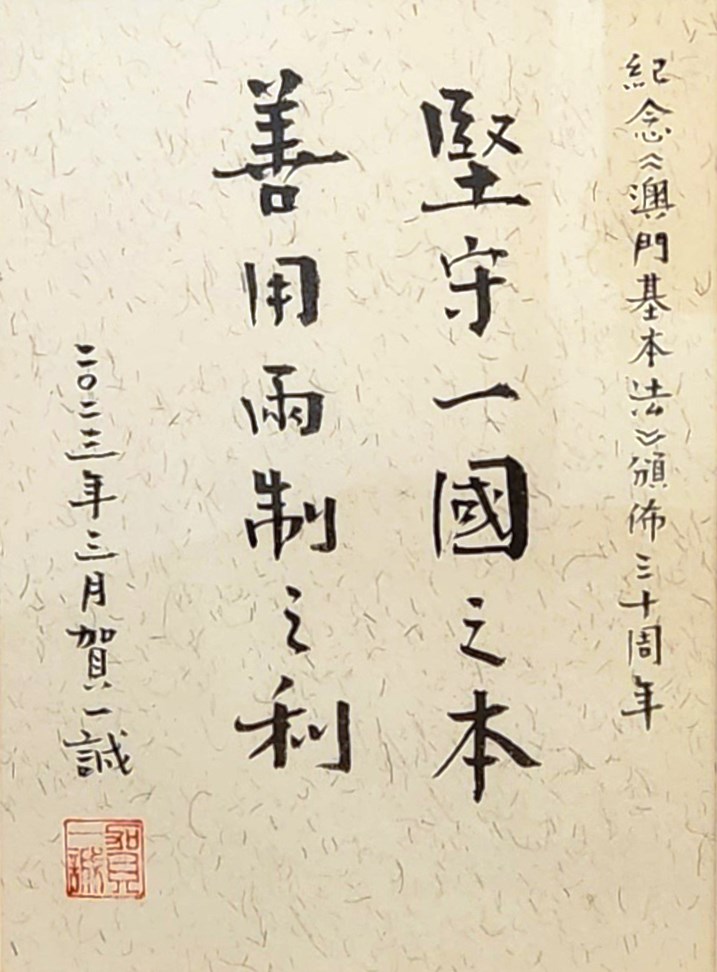 紀念《澳門基本法》頒佈三十周年
堅守一國之本
善用兩制之利
二〇二三年三月賀一誠
賀一誠